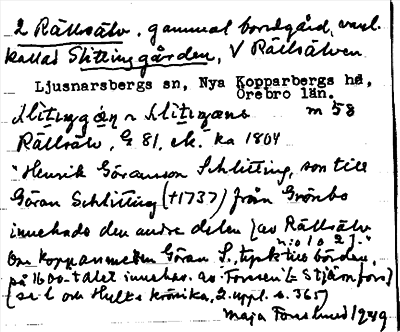 2 Rällsälv, gammal bondgård, vanl.
kallad Slittinggården, V Rällsälven
Ljusnarsbergs sn, Nya Kopparbergs hd,
Örebro län.
m 58
Rällsälv, G 81, ek. ka 1804
"Henrik Göransson Schlitting, son till
Göran Schlitting (†1737) från Grönbo
innehade den andra delen [av Rällsälv
n:o 1 o 2]."
Om kopparsmeden Göran S., tysk till börden,
på 1600-talet innehav. av Forssen (= Stjärnfors)
(se t om Hulks krönika, 2. uppl. s. 365)
Maja Forsslund 1949